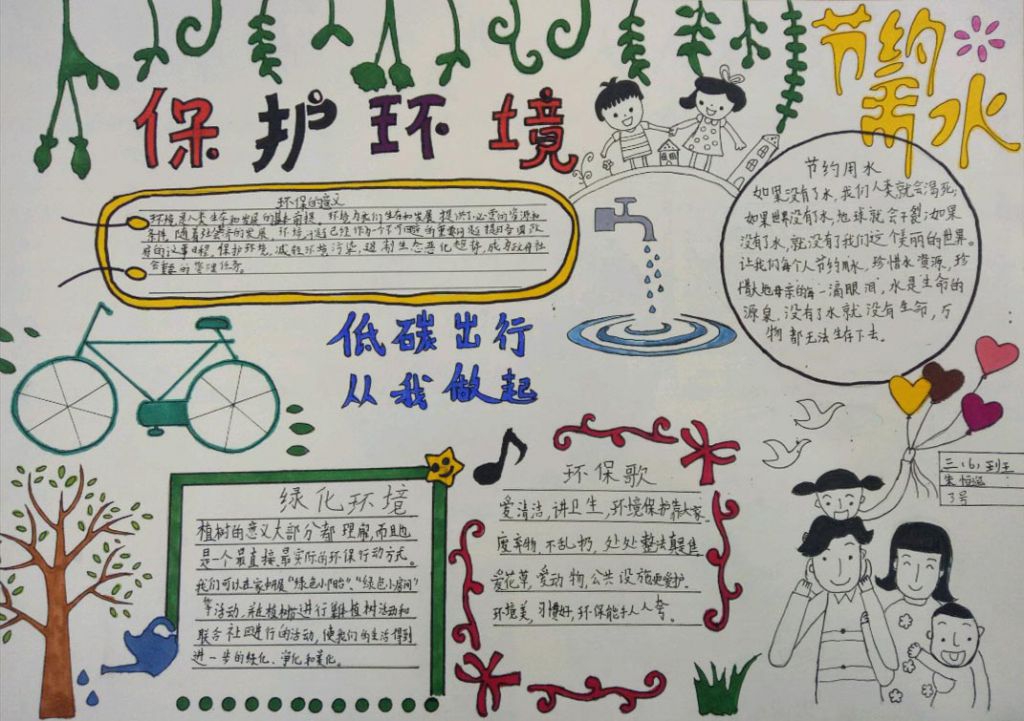 保护环境
节约
用水
环保的意义
环境是人类生存和发展的基本前提，环境为我们生存和发展提供了必需的资源和
条件，随着社会的发展，环境问题已经作为一个不可回避的重要问题提上各国政
府的议事日程，保护环境，减轻环境污染，遏制生态恶化趋势，成为政府社
会管理任务。
节约用水
如果没有了水，我们人类就会渴死，
如果世界没有水，地球就会干裂，如果
没有了水，就没有了我们这个美丽的世界。
让我们每个人节约用水，珍惜水资源，珍
惜大地母亲的每一滴眼泪，水是生命的
源泉，没有了水就没有生命，万
物都无法生存下去。
低碳出行
从我做起
三（6）
了号
绿化环境
植树的意义大部分都理解，而且也
是一个最直接、最实际的环保行动方式。
我们可以在家"绿色小阳台"、"绿色小房间"
等活动，并在植树节进行植树活动和
联合社区进行的活动，使我们的生活得到
进一步的绿化、净化和美化。
环保歌
爱清洁，讲卫生，环境保护靠大家。
废弃物，不乱扔，处处整洁真是佳
爱花草，爱动物，公共设施更爱护。
环境美，习惯好，环保能手人人夸。